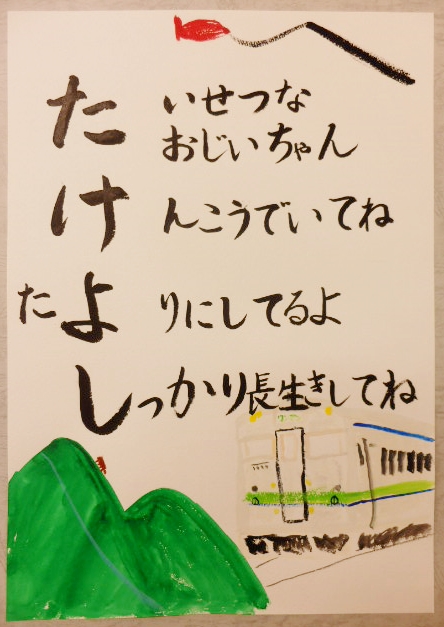 たいせつな
おじいちゃん
けんこうでいてね
たよりにしてるよ
しっかり長生きしてね